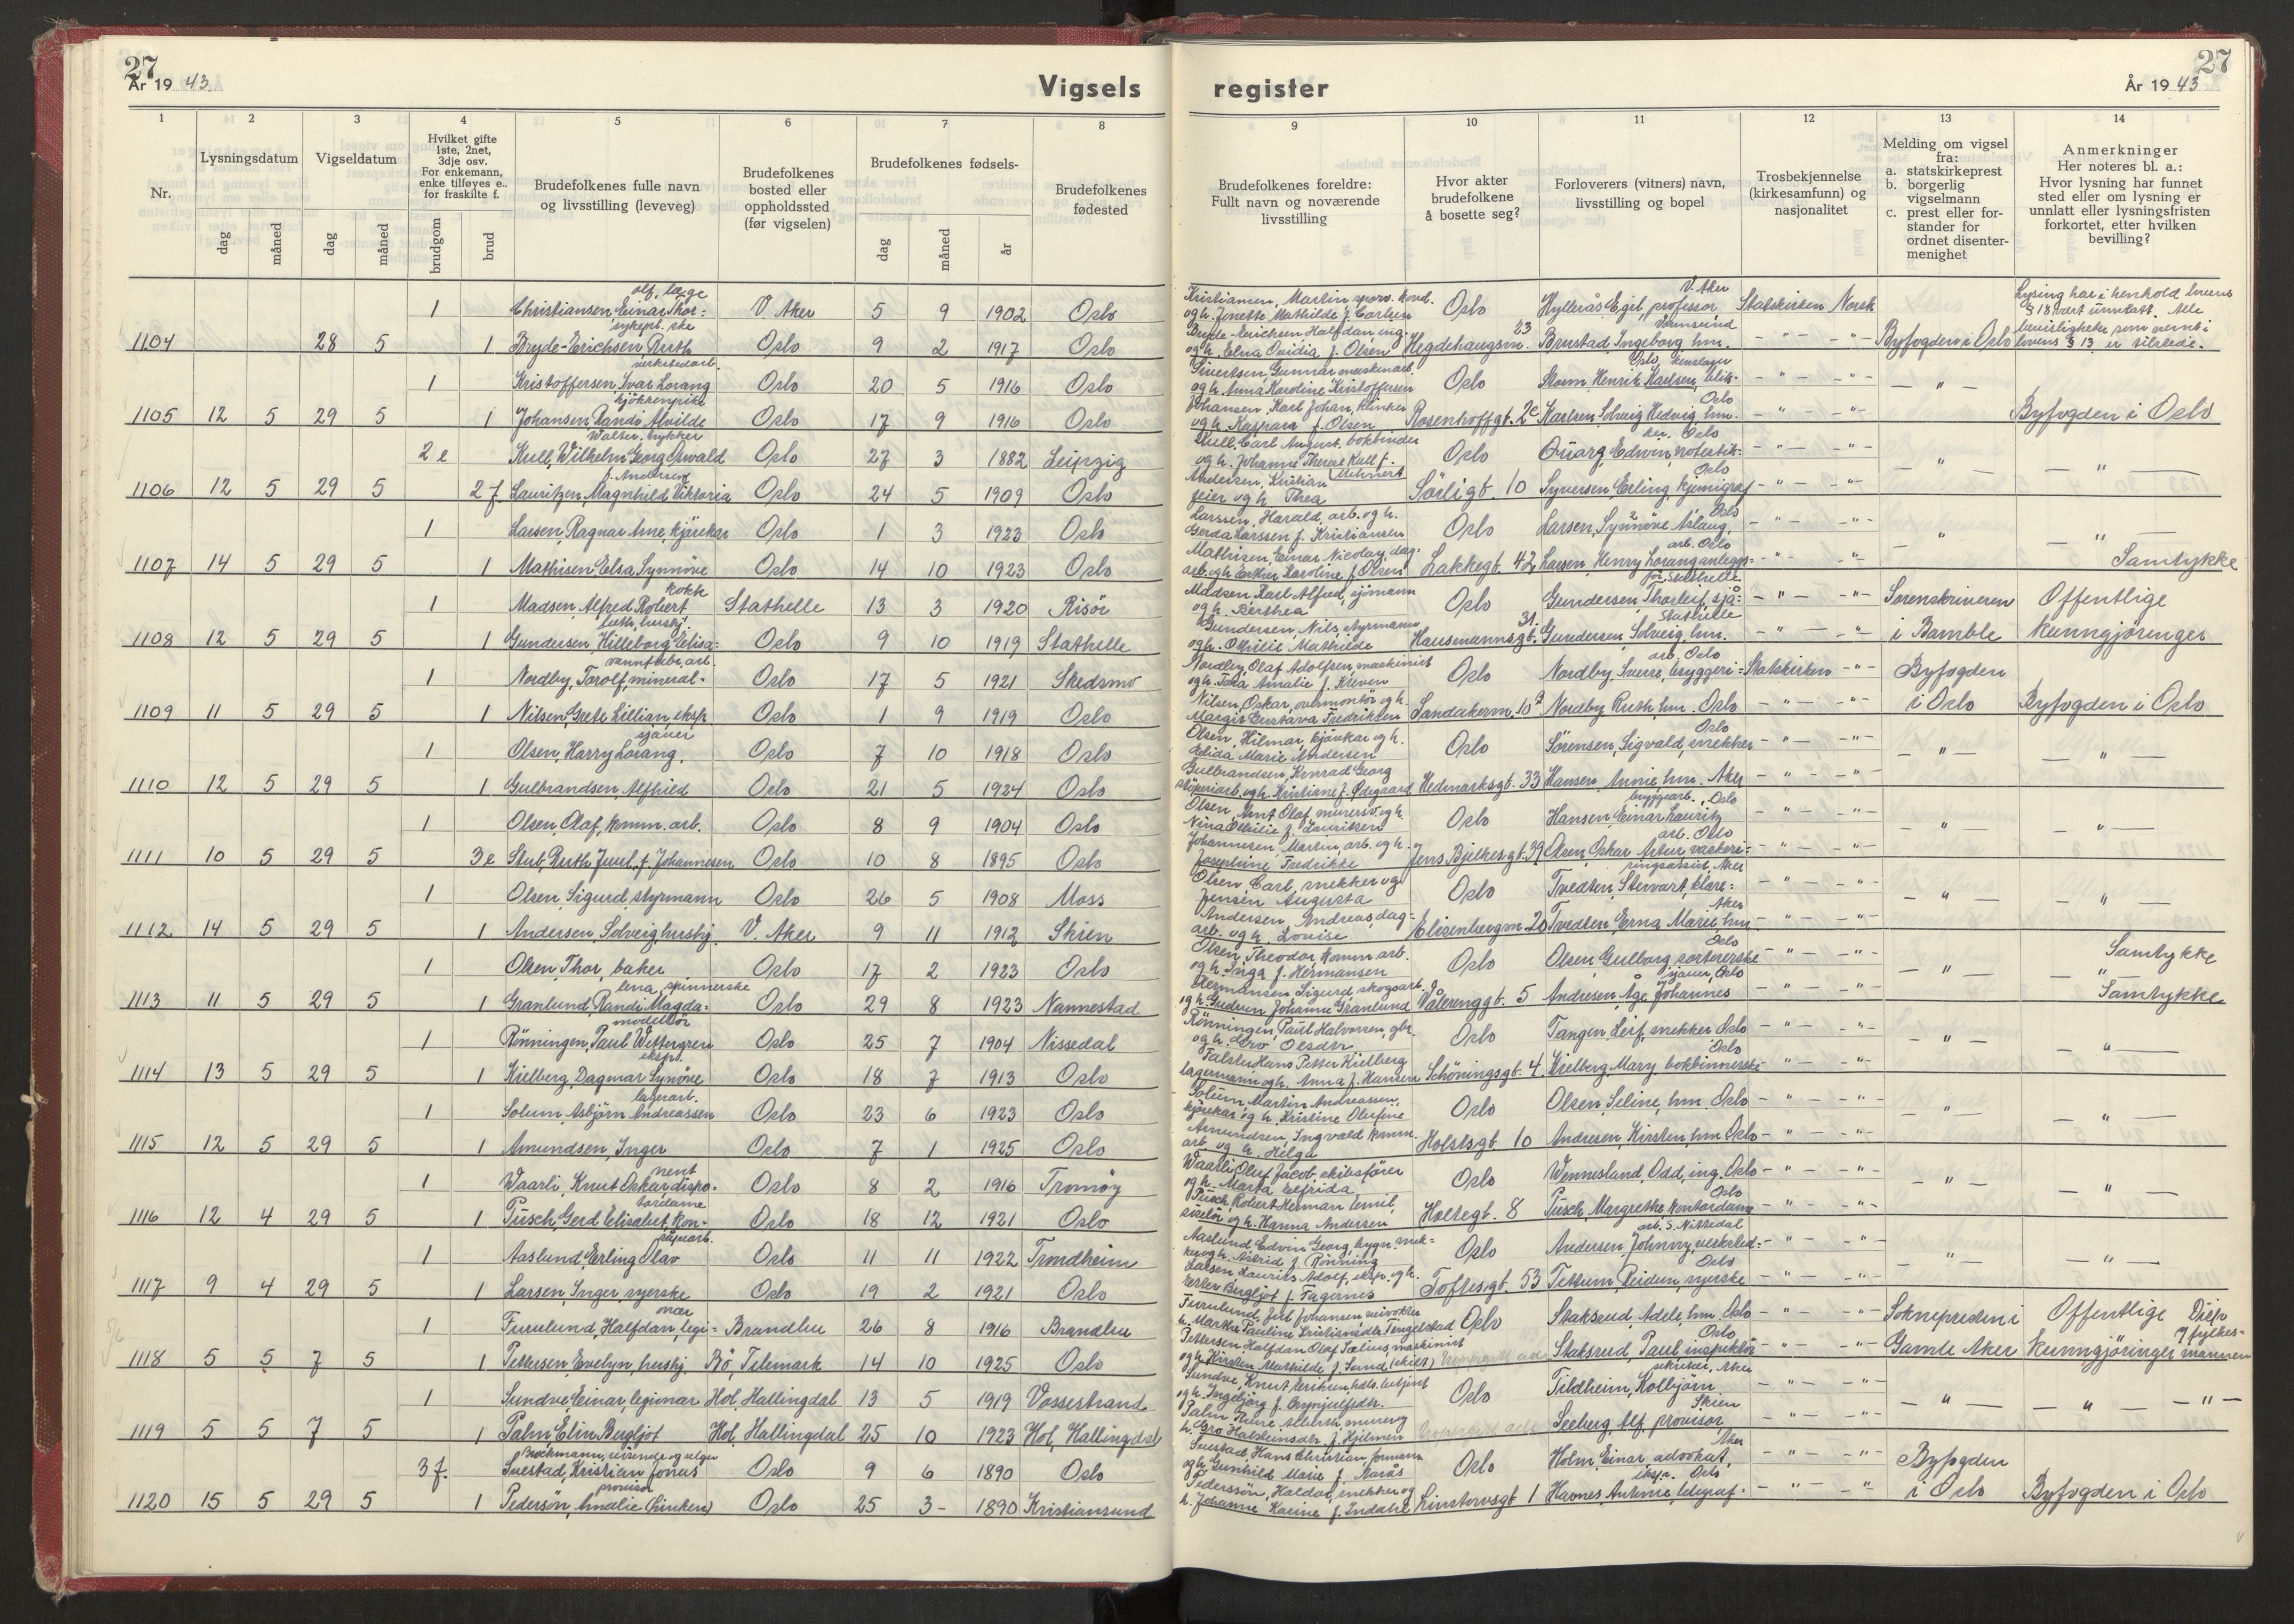 27
År 1943.
Vigsels
register
27
År 1943
1
2
3
4
5
6
7
8
9
10
11
12
13
14
Nr.
Lysningsdatum
Vigseldatum
Hvilket gifte
1ste, 2net,
3dje osv.
For enkemann,
enke tilføyes e..
for fraskilte f.
Brudefolkenes fulle navn
og livsstilling (leveveg)
Brudefolkenes
bosted eller
oppholdssted
(før vigselen)
Brudefolkenes fødsels-
Brudefolkenes
fødested
Brudefolkenes foreldre:
Fullt navn og noværende
livsstilling
Hvor akter
brudefolkene
å bosette seg?
Forloverers (vitners) navn,
livsstilling og bopel
Trosbekjennelse
(kirkesamfunn) og
nasjonalitet
Melding om vigsel
fra:
a. statskirkeprest
b. borgerlig
vigselmann
c. prest eller for-
stander for
ordnet disenter-
menighet
Anmerkninger
Her noteres bl. a.:
Hvor lysning har funnet
sted eller om lysning er
unnlatt eller lysningsfristen
forkortet, etter hvilken
bevilling?
dag
måned
dag
måned
brudgom
brud
dag
måned
år
olf, læge
1 Christiansen, Einar Thor= V. Aker 5 9 1902 Oslo
sykepl.ske
1104 28 5 1 Bryde-Erichsen, Ruth Oslo 9 2 1917 Oslo
verkstedarb.
1 Kristoffersen, Ivar Lorang Oslo 20 5 1916 Oslo
kjøkkenpike
1105 12 5 29 5 1 Johansen, Randi Alvilde Oslo 17 9 1916 Oslo
Walter. trykker
2 e Kull, Wilhelm Georg Oswald Oslo 27 3 1882 Leipzig
f. Andersen
1106 12 5 29 5 2 f Lauritzen, Magnhild Viktoria Oslo 24 5 1909 Oslo
1 Larsen, Ragnar Arne, kjørekar Oslo 1 3 1923 Oslo
1107 14 5 29 5 1 Mathisen, Elsa Synnøve Oslo 14 10 1923 Oslo
kokk
1 Madsen, Alfred Robert Stathelle 13 3 1920 Risør
beth, hushj.
1108 12 5 29 5 1 Gundersen Hilleborg Elisa= Oslo 9 10 1919 Stathelle
vannfabr. arb.
1 Nordby, Torolf, mineral- Oslo 17 5 1921 Skedsmo
1109 11 5 29 5 1 Nilsen, Grete Lillian, eksp. Oslo 1 9 1919 Oslo
sjauer
1 Olsen, Harry Lorang, Oslo 7 10 1918 Oslo
1110 12 5 29 5 1 Gulbrandsen, Alfhild Oslo 21 5 1924 Oslo
1 Olsen, Olaf, komm. arb. Oslo 8 9 1904 Oslo
1111 10 5 29 5 3 e Stub, Ruth Juul, f. Johannesen Oslo 10 8 1895 Oslo
1 Olsen, Sigurd, styrmann Oslo 26 5 1908 Moss
1112 14 5 29 5 1 Andersen, Solveig hushj. V. Aker 9 11 1912 Skien
1 Olsen, Thor, baker Oslo 17 2 1923 Oslo
lena, spinnerske
1113 11 5 29 5 1 Granlund, Randi Magda= Oslo 29 8 1923 Nannestad
modellør
1 Rønningen, Paul Wettergren Oslo 25 7 1904 Nissedal
eksp.
1114 13 5 29 5 1 Kielberg, Dagmar Synøve Oslo 18 7 1913 Oslo
lagerarb.
1 Solum, Asbjørn Andreassen Oslo 23 6 1923 Oslo
1115 12 5 29 5 1 Amundsen, Inger Oslo 7 1 1925 Oslo
nent
1 Waarli, Knut Oskar, dispo- Oslo 8 2 1916 Tromøy
tordame
1116 12 4 29 5 1 Pusch, Gerd Elisabet, kon- Oslo 18 12 1921 Oslo
1 Aaslund, Erling Olav Oslo 11 11 1922 Trondheim
1117 9 4 29 5 1 Larsen, Inger, syerske Oslo 19 2 1921 Oslo
onær
1 Furulund, Halfdan, legi= Brandbu 26 8 1916 Brandbu
1118 5 5 7 5 1 Pettersen, Evelyn, hushj. Bø, Telemark 14 10 1925 Oslo
1 Sundve, Einar, legionær Hol, Hallingdal 13 5 1919 Vossestrand
1119 5 5 7 5 1 Palm Elin Bergljot Hol, Hallingdal 25 10 1923 Hol, Hallingdal
Brockmann, reisende og selger
3 f. Svestad, Kristian Jonas Oslo 9 6 1890 Oslo
provisor
1120 15 5 29 5 1 Pedersøn, Amalie (Linken) Oslo 25 3- 1890 Kristiansund
V. Aker
Oslo Hylleraas Egil, professor Statskirken Norsk
Lysing har i henhold lovens
§ 18 vært unnlatt. Alle
23
og h. Elna Ovidia f. Olsen Hegdehaugsv. Brustad, Ingeborg hm. Byfogden i Oslo lovens § 13 er tilstede.
og h. Anna Karoline Kristoffersen Oslo
Oslo
og h. Kaspara f. Olsen Rosenhoffgt. 2c Karlsen, Solveig Hedvig, hm. Byfogden i Oslo
Kull, Carl August, bokbinder
og h. Johanne Therese Kull f. Mehnert Oslo
Andersen, Kristian
feier og h. Thea Sørligt. 10 Syversen Erling, kjemigraf
Larssen, Harald, arb. og h.
Gerda Larssen f. Kristiansen Oslo Larsen, Synnøve Aslaug. Oslo
Mathisen, Einar Nicolay, dag-
arb. og h. Esther Karoline f. Olsen Lakkegt. 42 Larsen Henry Lorang anleggs= arb. Oslo Samtykke
Madsen Karl Alfred, sjømann
og h. Berthea Oslo Gundersen, Thorleif, sjå= Sorenskriveren Offentlige
Gundersen, Nils, styrmann
31.
og h. Othilie Mathilde Hausmannsgt. Gundersen, Solveig, hm. Stathelle i Bamble kunngjøringer
Nordby, Olaf Adolfsen, maskinist
og h. Tora Amalie f. Kleven Oslo Nordby, Sverre, bryggeri= arb. Oslo Statskirken Byfogden
Nilsen, Oskar, overmontør og h.
Margit Gustava Fredriksen Sandakerv. 10 Nordby, Ruth, hm. Oslo i Oslo Byfogden i Oslo
Olsen, Hilmar, kjørekar og h.
Elida Marie Andersen Oslo Sørensen, Sigvald, snekker Oslo
Gulbrandsen, Konrad Georg
støperiarb. og h. Kristiane f. Ødegaard Hedmarksgt. 33 Hansen, Annie, hm. Aker
Olsen, Amt Olaf, murersv. og h.
Nina Othilie f. Lauritzen Oslo Hansen, Einar Lauritz bryggearb., Oslo
Johannesen, Martin, arb. og h.
Josephine Fredrikke Jens Bjelkesgt. 39 Olsen, Oskar Artur vaskeri= arb. Oslo
Olsen, Carl, snekker og
Jensen Augusta Oslo Tvedten, Stewart, klare= ringsassist. Aker
Andersen, Andreas, dag=
arb. og h. Louise Elisenbergv. 20 Tvedten, Erna Marie, hm. Aker
Olsen, Theodor, komm. arb.
og h. Inga f. Hermansen Oslo Olsen, Gulborg sortererske Oslo Samtykke
Hermansen, Sigurd, skogsarb.
og h. Gudrun Johanne Granlund Vålerenggt. 5 Andresen, Åge Johannes sjauer, Oslo Samtykke
Rønningen, Paul Halvorsen, gbr.
og h. Olsdtr. Oslo Tangen, Leif, snekker Oslo
Hans Petter Kielberg
lagermann og h. Anna f. Hansen Schøningsgt. 4 Kielberg, Mary, bokbinnerske Oslo
Solum, Martin Andreassen,
kjørekar og h. Kristine Olufine Oslo Olsen, Seline, hm. Oslo
Amundsen, Ingvald komm.
arb. og h. Helga Holstsgt. 10 Andresen, Kirsten, hm. Oslo
Waarli, Oluf Jacob, skibsfører
og h. Marta Elfrida Oslo Wennesland, Odd, ing. Oslo
Pusch, Robert Herman Emil,
siselør og h. Hanna Andersen Holtegt. 8 Pusch, Margrethe kontordame Oslo
Aaslund Edvin Georg, bygn. snek=
ker og h. Astrid f. Rønning Oslo Andersen, Johnny, verksted- arb. S. Nittedal
Larsen, Laurits Adolf, eksp. og h.
Ester Bergljot f. Fagernes Toftesgt. 53 Tettum, Reidun, syerske Oslo
Oslo Staksrud, Adele, hm. Oslo Sognepresten i Offentlige Disp
Pettersen Halfdan Olaf Tælius, maskinist
og h. Kirsten Mathilde f. Sand (skilt) Staksrud, Paul inspektør Oslo Gamle Aker kunngjøringer fylkes= mannen
Sundve, Knut Eriksen
og h. Ingebjørg f. Brynjulfsdtr. Oslo Tildheim, Kolbjørn
Palm
h. Gro Halsteinsdtr. f. Hjelmen Seeberg, Alf, provisor, Skien
Svestad, Hans Christian, formann
og h. Gunhild Marie f. Oslo Holm, Einar, advokat, Aker Byfogden
Pederssøn, Haldor, snekker og
h. Johanne Karine f. Indahl Linstowsgt. 1 Havnes, Antonie, telegraf- eksp. Oslo i Oslo Byfogden i Oslo